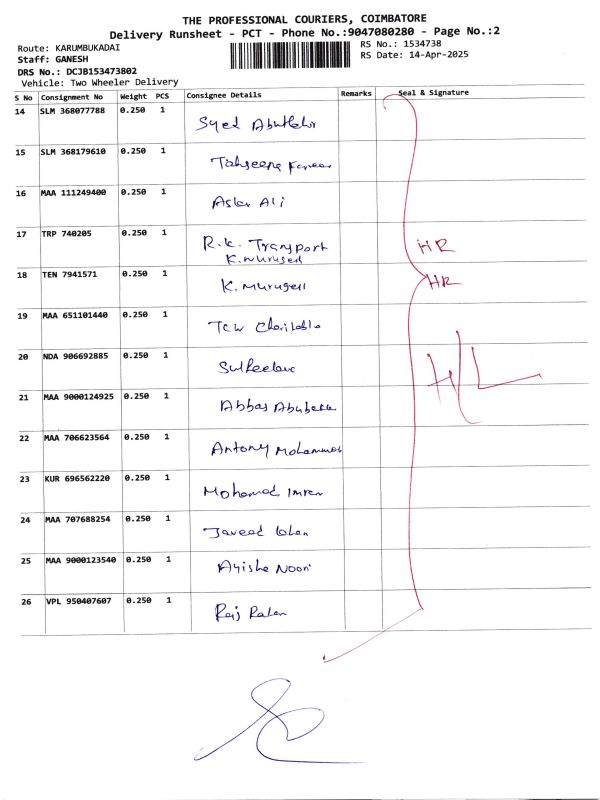 THE PROFESSIONAL COURIERS, COIMBATORE
Delivery Runsheet - PCT - Phone No.:9047080280 - Page No.:2
Route: KARUMBUKADAI
RS No.: 1534738
Staff: GANESH
RS Date: 14-Apr-2025
DRS No.: DCJB153473802
Vehicle: Two Wheeler Delivery
S No Consignment No Weight PCS Consignee Details Remarks Seal & Signature
14 SLM 368077788 0.250 1 Syed
15 SLM 368179610 0.250 1
16 MAA 111249400 0.250 1 Aslar Ali
17 TRP 740205 0.250 1 R.K. Transport HR
K.Murugesh
18 TEN 7941571 0.250 1 K. Murugesh HR
19 MAA 651101440 0.250 1 TCW
20 NDA 906692885 0.250 1
21 MAA 9000124925 0.250 1 Abbas
H/L
22 MAA 706623564 0.250 1 Antony Mohammed
23 KUR 696562220 0.250 1 Mohamed Imran
24 MAA 707688254 0.250 1 Javeed Khan
25 MAA 9000123540 0.250 1 Ayisha Noori
26 VPL 950407607 0.250 1 Raj